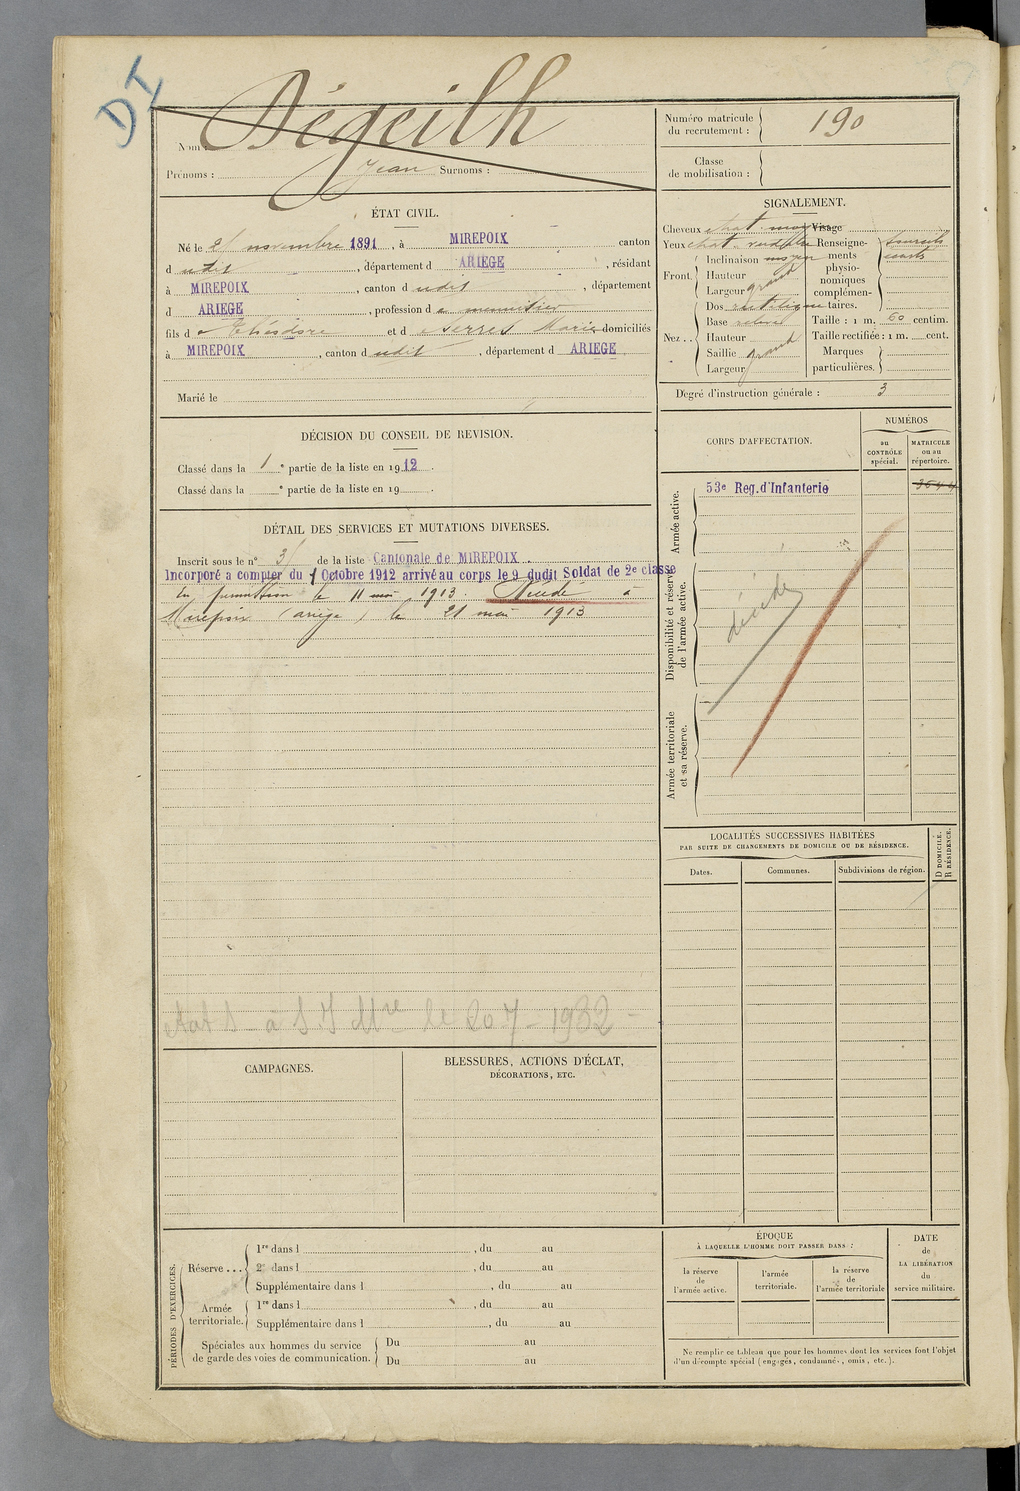 DI
Nom : Dégeilh
Prénoms : Jean Surnoms :
Numéro matricule du recrutement : 190
Classe de mobilisation :
ÉTAT CIVIL.
Né le novembre 1891, à MIREPOIX canton
d udit, département d ARIEGE, résidant
à MIREPOIX, canton d udit, département
d ARIEGE, profession d e menuisier
fils d e Théodore et d e Serres Marie domiciliés
à MIREPOIX, canton d udit, département d ARIEGE
Marié le
SIGNALEMENT.
Cheveux chat. moy
Yeux chat.
Front. Inclinaison moyen
Hauteur
Largeur grand
Nez . . Dos rectiligne
Base relevé
Hauteur
Saillie grand
Largeur
Visage
Renseignements physionomiques complémentaires. sourcils
Taille : 1 m. 60 centim.
Taille rectifiée : 1 m. cent.
Marques particulières.
Degré d'instruction générale : 3
DÉCISION DU CONSEIL DE REVISION.
Classé dans la 1 e partie de la liste en 1912.
Classé dans la e partie de la liste en 19 .
DÉTAIL DES SERVICES ET MUTATIONS DIVERSES.
Inscrit sous le n° de la liste Cantonale de MIREPOIX.
Incorporé a compter du 1 Octobre 1912 arrivé au corps le 9 dudit Soldat de 2e classe
le 11 mai 1913. Décédé à
Mirepoix (ariège) le 21 mai 1913
à S. le 20 7 - 1932 -
CORPS D'AFFECTATION.
NUMÉROS
au CONTRÔLE spécial.
MATRICULE ou au répertoire.
Armée active.
53e Reg. d'Infanterie
Disponibilité et réserve de l'armée active.
décédé
Armée territoriale et sa réserve.
LOCALITÉS SUCCESSIVES HABITÉES
PAR SUITE DE CHANGEMENTS DE DOMICILE OU DE RÉSIDENCE.
Dates.
Communes.
Subdivisions de région.
D DOMICILE.
R RÉSIDENCE.
CAMPAGNES.
BLESSURES, ACTIONS D'ÉCLAT,
DÉCORATIONS, ETC.
PÉRIODES D'EXERCICES.
Réserve . . .
1re dans l , du au
2e dans l , du au
Supplémentaire dans l , du au
Armée territoriale.
1re dans l , du au
Supplémentaire dans l , du au
Spéciales aux hommes du service
de garde des voies de communication.
Du au
Du au
ÉPOQUE
À LAQUELLE L'HOMME DOIT PASSER DANS :
la réserve de l'armée active.
l'armée territoriale.
la réserve de l'armée territoriale
DATE de LA LIBÉRATION du service militaire.
Ne remplir ce tableau que pour les hommes dont les services font l'objet
d'un décompte spécial (engagés, condamnés, omis, etc.).